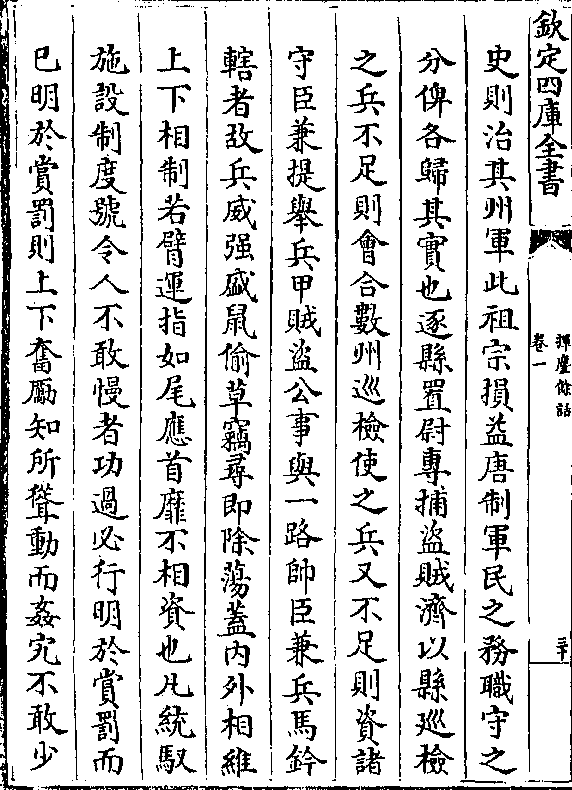 欽定四庫全書
揮麈餘話
卷一
三十
史則治其州軍此祖宗損益唐制軍民之務職守之
分俾各歸其實也逐縣置尉專捕盜賊濟以縣廵檢
之兵不足則會合數州廵檢使之兵又不足則資諸
守臣兼提舉兵甲賊盜公事與一路帥臣兼兵馬鈐
轄者故兵威强盛鼠偷草竊尋即除蕩蓋内外相維
上下相制若臂運指如尾應首靡不相資也凡統馭
施設制度號令人不敢慢者功過必行明於賞罰而
已明於賞罰則上下奮勵知所聳動而姦宄不敢少